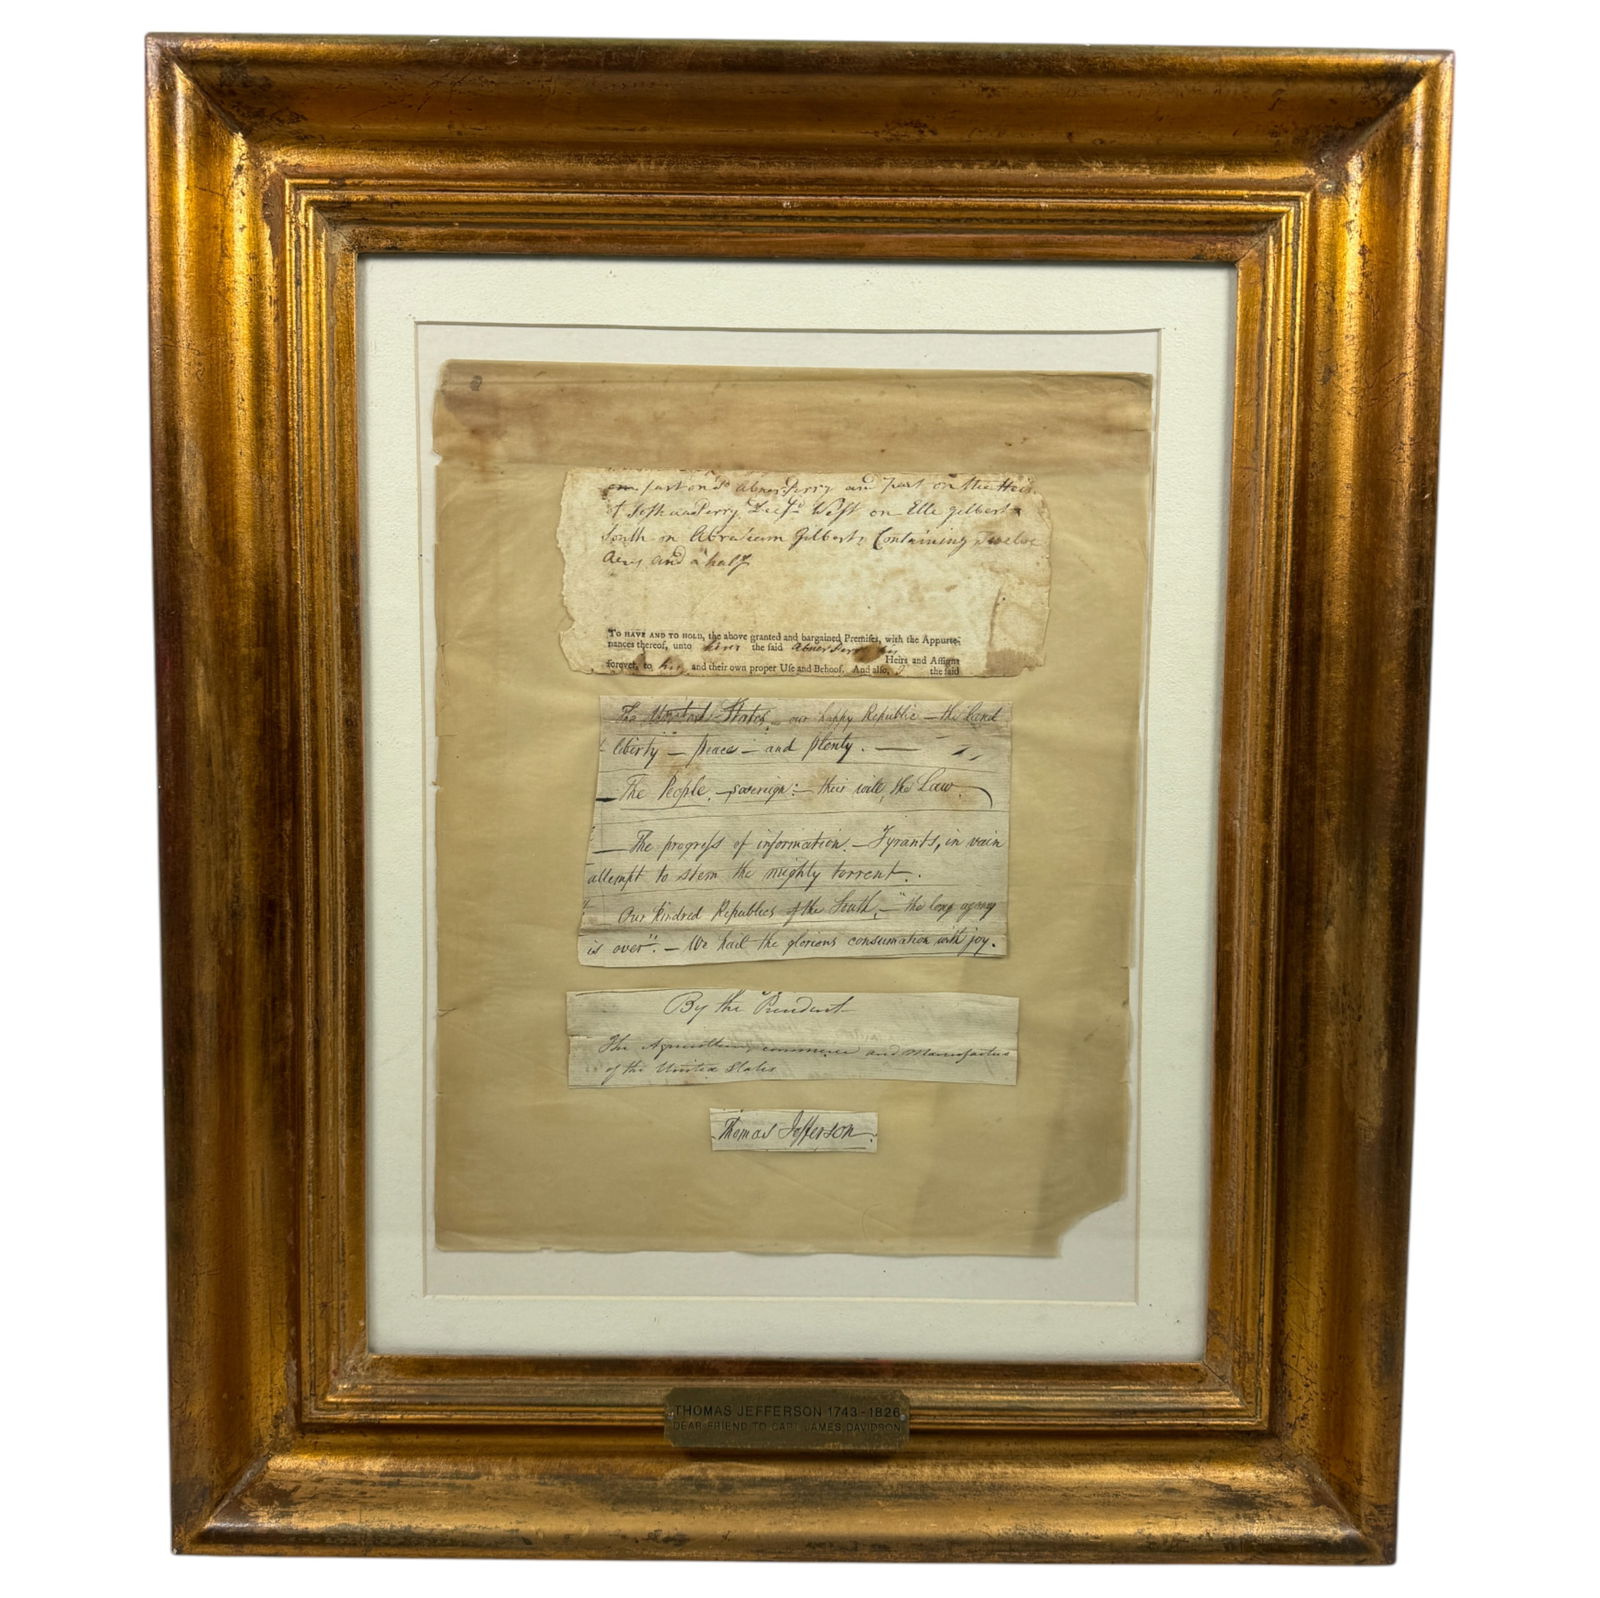 part on sd Abner Perry and Part on the Heirs
of Joshua Perry Decsd West on Elle Gilberts
South on Abraham Gilberts Containing Twelve
Acres and a half
TO HAVE AND TO HOLD, the above granted and bargained Premiſes, with the Appurte-
nances thereof, unto him the said Abner Perry his
Heirs and Aſſigns
forever, to his and their own proper Uſe and Behoof. And alſo, I the said
The United States — our happy Republic — the Land
liberty — peace — and plenty. —
— The People, — sovereign: — their will, the Law.
— The progreſs of information. — Tyrants, in vain
attempt to stem the mighty torrent.
Our Kindred Republics of the South, — "the long agony
is over". — We hail the glorious consumation with joy.
By the President
The Agriculture, commerce and Manufactures
of the United States
Thomas Jefferson.
THOMAS JEFFERSON 1743 - 1826
DEAR FRIEND TO CAPT. JAMES DAVIDSON